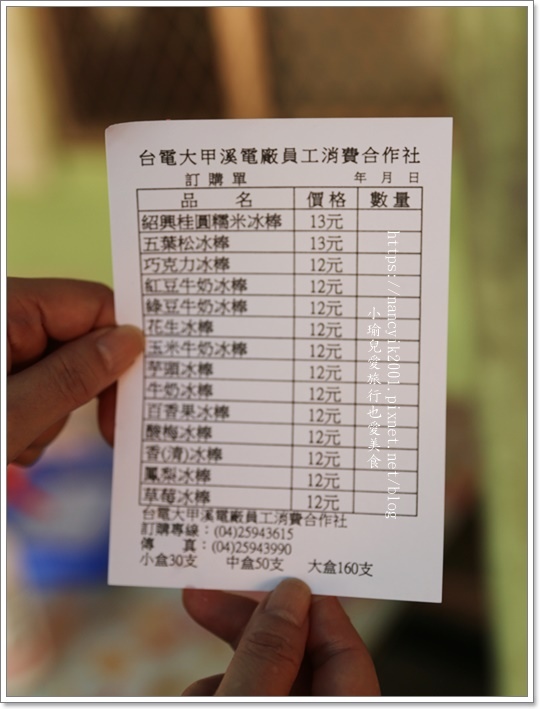 台電大甲溪電廠員工消費合作社
訂購單 年 月 日
品 名 價格 數量
紹興桂圓糯米冰棒 13元
五葉松冰棒 13元
巧克力冰棒 12元
紅豆牛奶冰棒 12元
綠豆牛奶冰棒 12元
花生冰棒 12元
玉米牛奶冰棒 12元
芋頭冰棒 12元
牛奶冰棒 12元
百香果冰棒 12元
酸梅冰棒 12元
香(清)冰棒 12元
鳳梨冰棒 12元
草莓冰棒 12元
台電大甲溪電廠員工消費合作社
訂購專線：(04)25943615
傳 真：(04)25943990
小盒30支 中盒50支 大盒160支
https://nancyik2001.pixnet.net/blog
小瑜兒愛旅行也愛美食